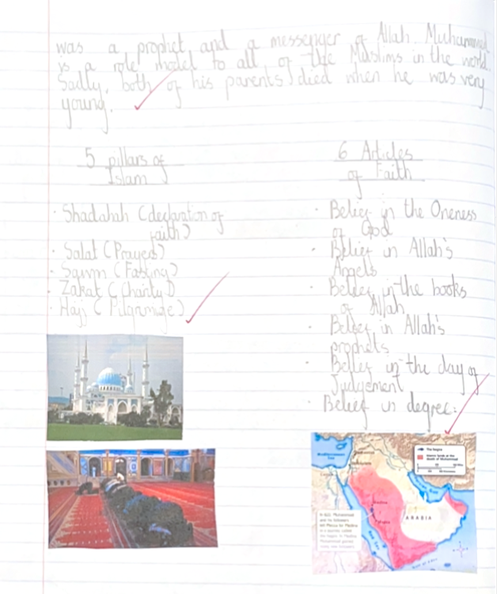 was a prophet and a messenger of Allah. Muhammad
is a role model to all of the Muslims in the world.
Sadly, both of his parents died when he was very
young.
5 pillars of
Islam
· Shadahah (declaration of
faith)
· Salat (Prayer)
· Sawm (Fasting)
· Zakat (Charity)
· Hajj (Pilgrimage)
6 Articles
of Faith
· Belief in the Oneness
of God
· Belief in Allah's
Angels
· Belief in the books
of Allah
· Belief in Allah's
prophets
· Belief in the day of
Judgement
· Belief in degree.
Mediterranean
Sea
ARABIA